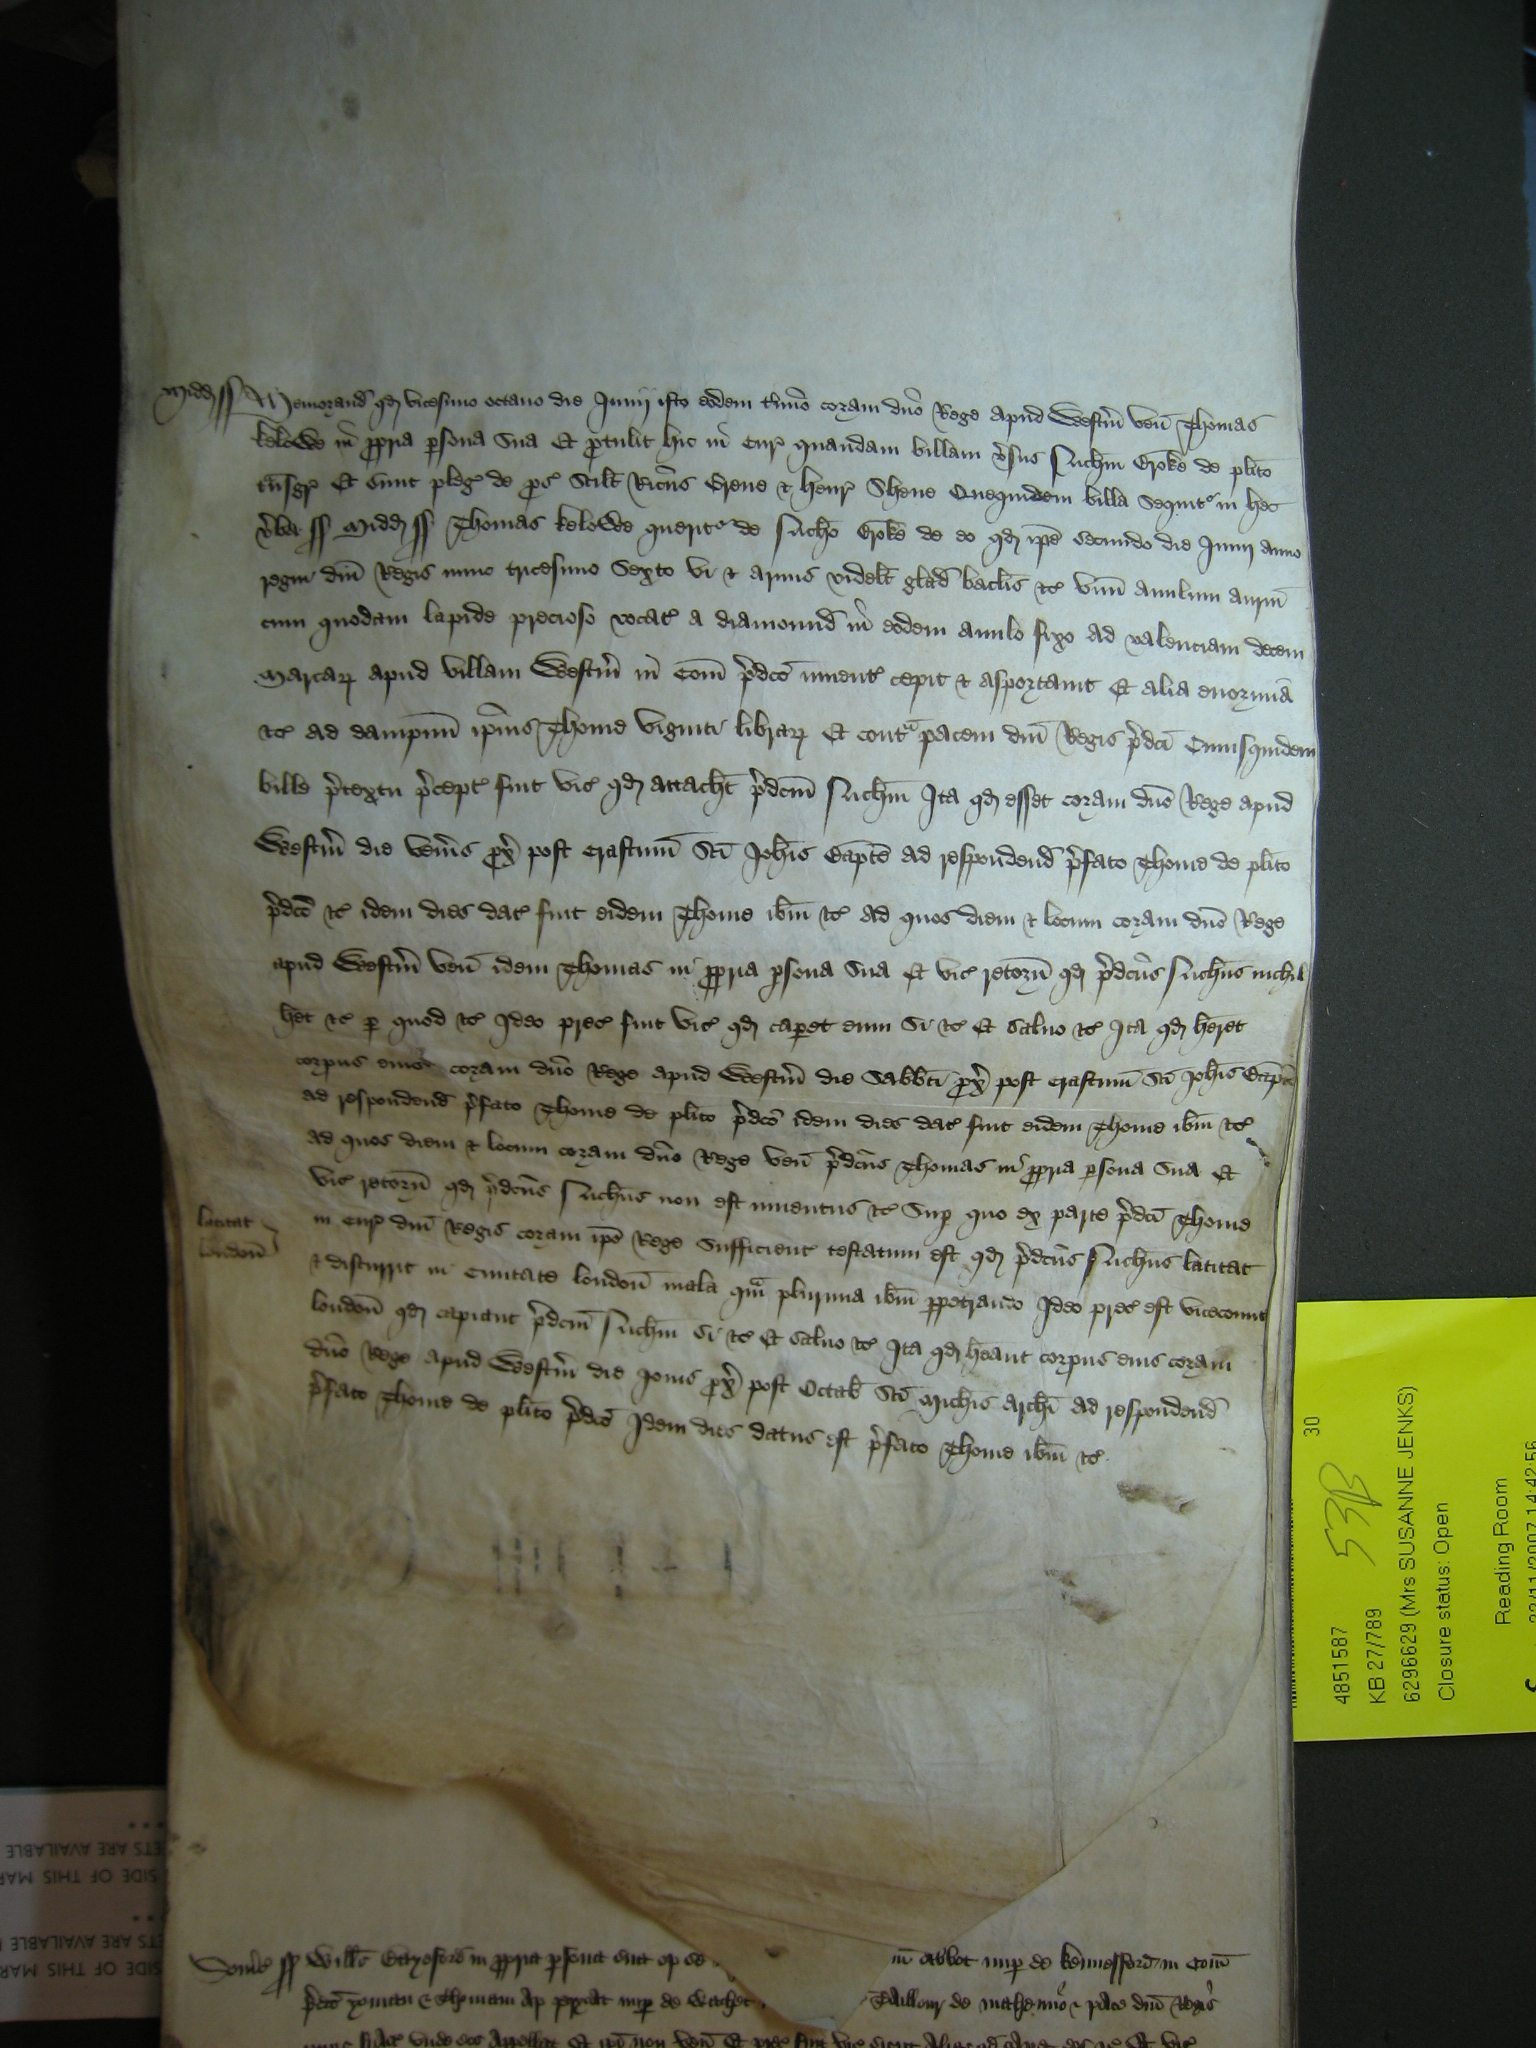 Midd ss Memorand qd vicesimo octavo die Junii isto eodem t'mino coram dno Rege apud Westm ven Thomas
kelowe in ppria psona sua Et ptulit hic in Cur quandam billam vsus Nichm Croke de plito
tnsgr Et sunt pleg de ps Scilt Ricus Grene & Henr Shene Quequidem billa sequit in hec
vba ss Midd ss Thomas kelowe querit de Nicho Croke de eo qd ipe secundo die Junii anno
regni dni Regis nunc tricesimo sexto vi & armis videlt glad baclis &c unu anulum auru
cum quodam lapide precioso vocat a diamound in eodem anulo fixo ad valenciam decem
marcar apud villam Westm in Com pdco invent cepit & asportavit Et alia enormia
&c ad dampnu ipius Thome viginti librar Et contra pacem dni Regis pdci Cuiusquidem
bille ptextu pcept fuit vic qd attach pdcm Nichm Ita qd esset coram dno Rege apud
Westm die ven'is px post Crastinu Sci Johis Bapte ad respondend pfato Thome de plito
pdco &c idem dies dat fuit eidem Thome ibm &c ad quos diem & locum coram dno Rege
apud Westm ven idem Thomas in ppria psona sua Et vic retorn qd pdcus Nichus nichil
het &c p quod &c Ideo prec fuit vic qd caperet eum Si &c Et salvo &c Ita qd heret
corpus eius coram dno Rege apud Westm die Sabbti px post Crastinu Sci Johis Bapte
ad respondend pfato Thome de plito pdco idem dies dat fuit eidem Thome ibm &c
ad quos diem & locum coram dno Rege ven pdcus Thomas in ppria psona sua Et
vic retorn qd pdcus Nichus non est inventus &c Sup quo ex parte pdci Thome
latitat
London
in Cur dni Regis coram ipo Rege sufficient testatum est qd pdcus Nichus latitat
& discurrit in Civitate London mala qm plurima ibm ppetrando Ideo prec est vicecomit
London qd capiant pdcm Nichm Si &c Et salvo &c Ita qd heant corpus eius coram
dno Rege apud Westm die Jovis px post Octab Sci Michis Archi ad respondend
pfato Thome de plito pdco Idem dies datus est pfato Thome ibm &c
Wills in ppria psona sua op se Abbot nup de in Com
pdco yoman & Thomam ap nup de Taillour de & pace dni Regis
4851587 30
KB 27/789 53B
6296629 (Mrs SUSANNE JENKS)
Closure status: Open
Reading Room